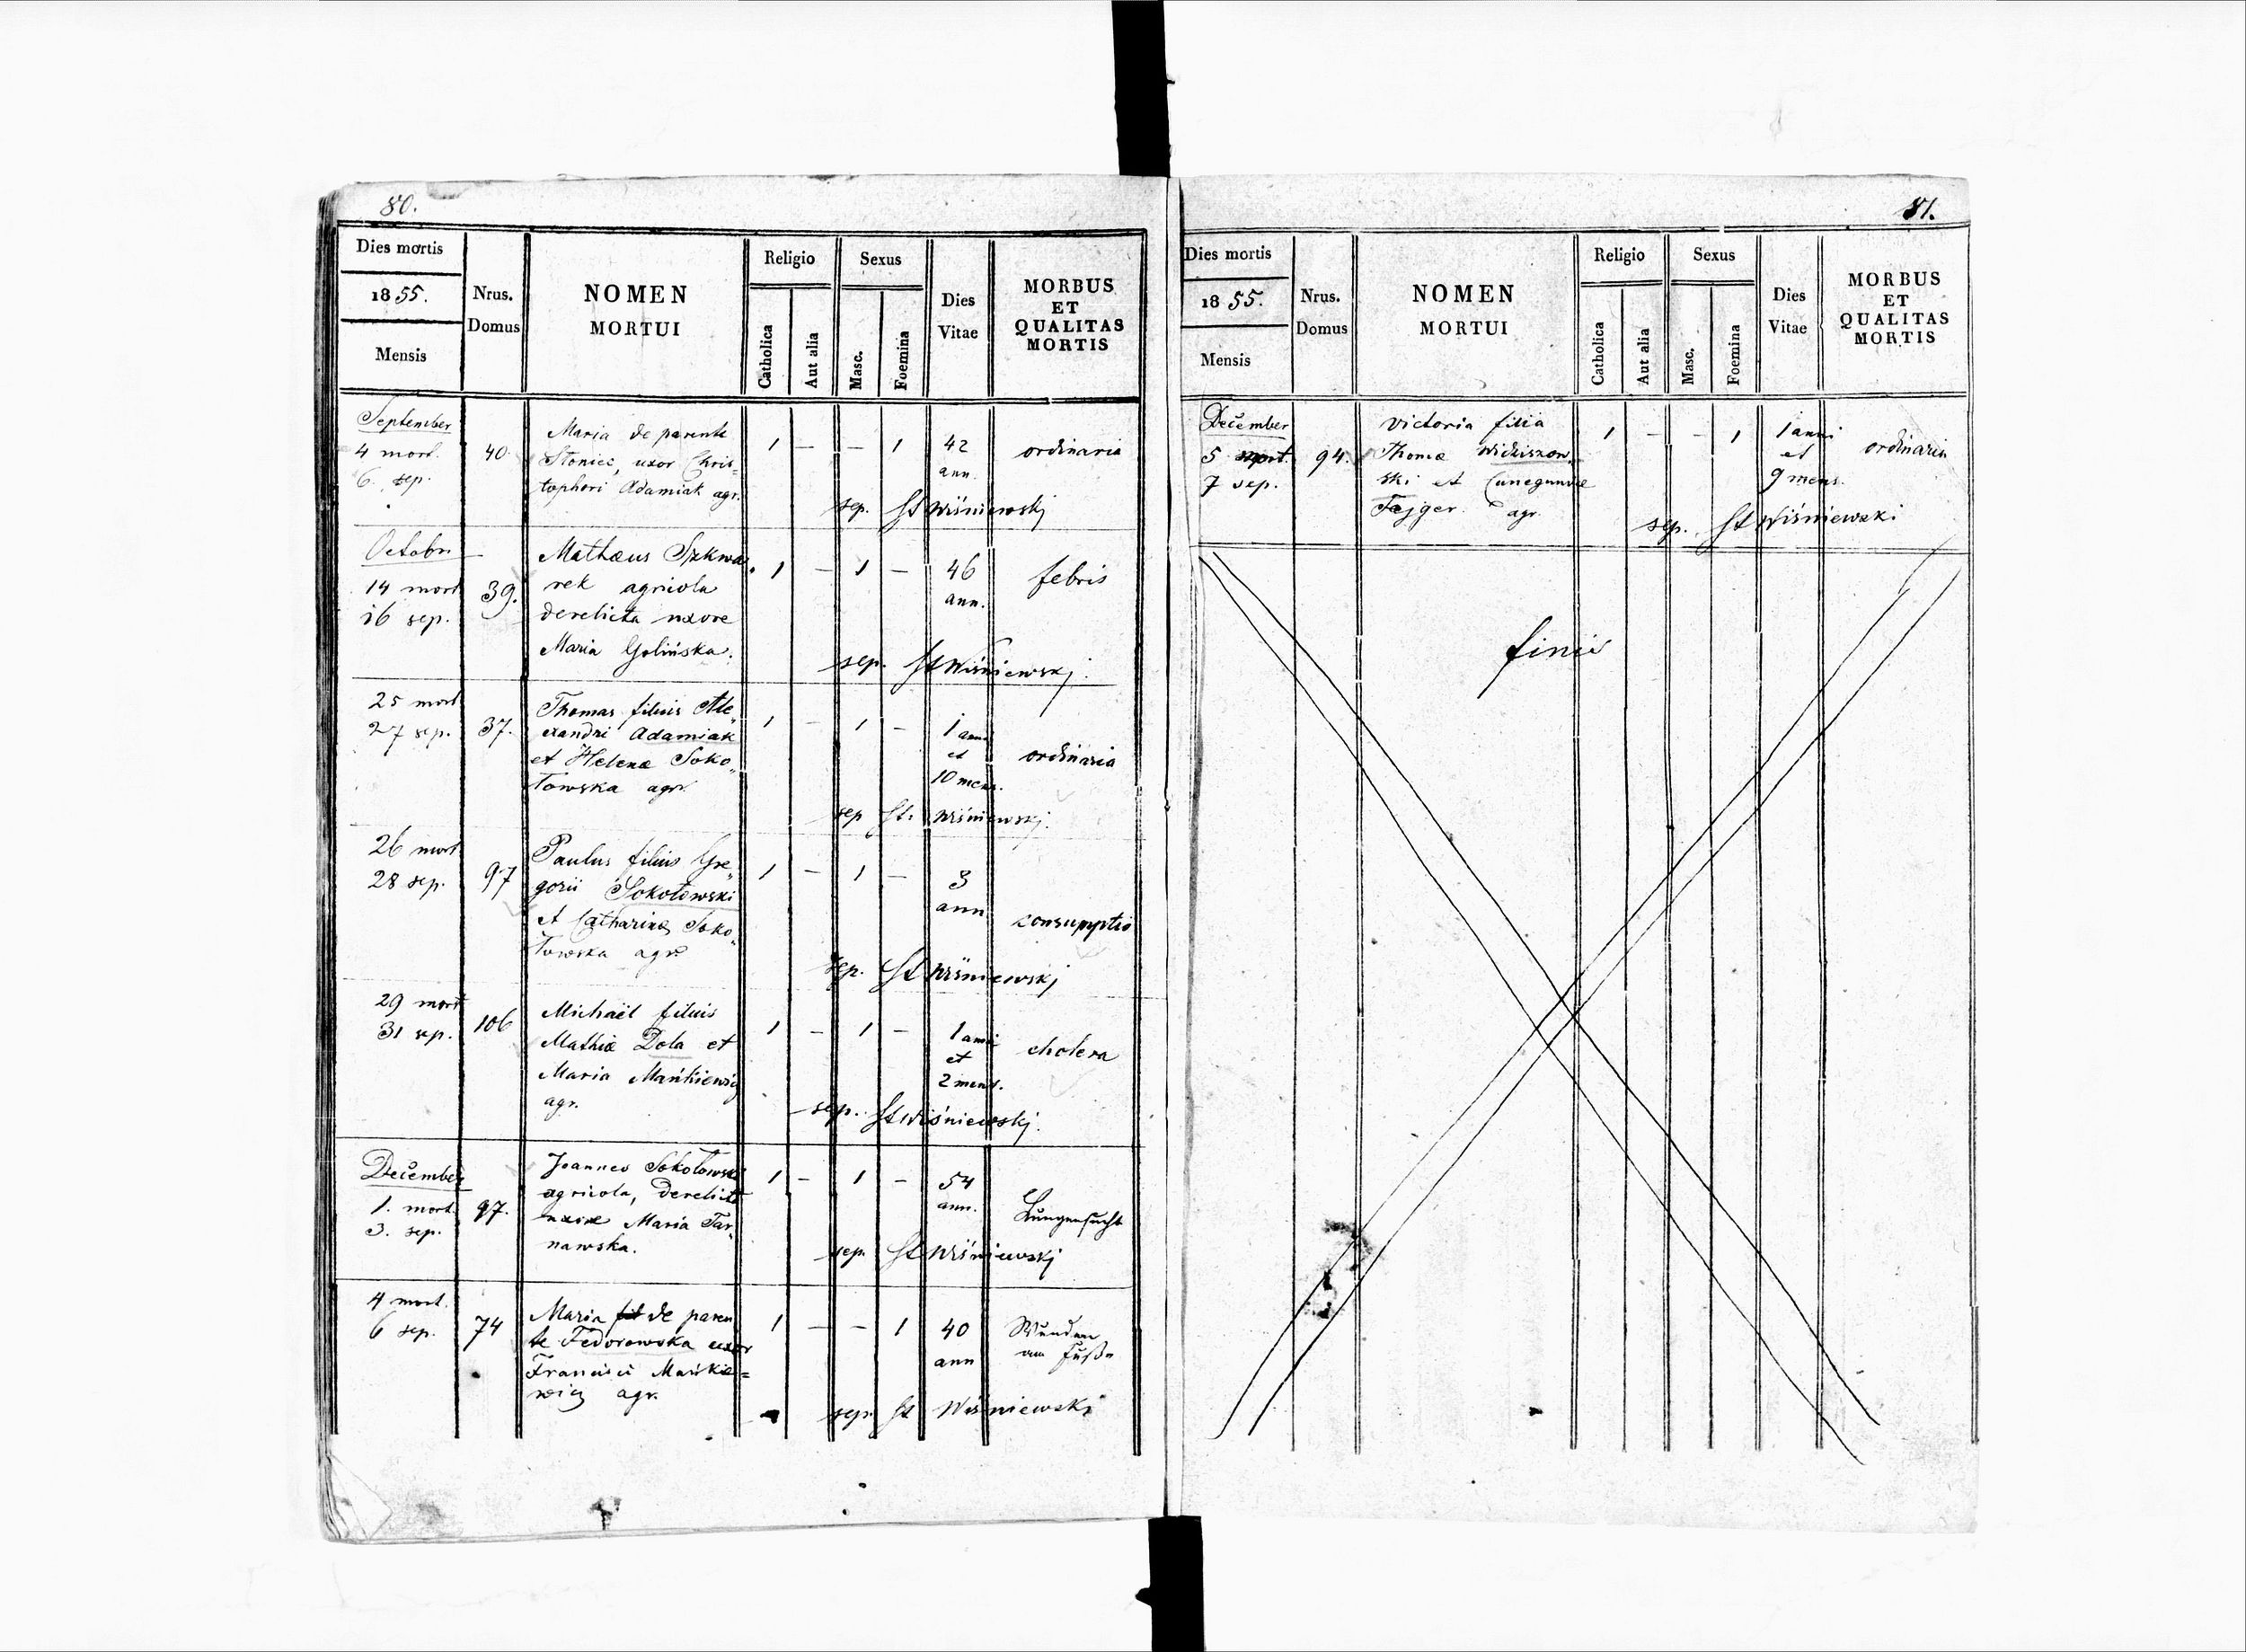 80.
Dies mortis
1855.
Mensis
Nrus.
Domus
NOMEN
MORTUI
Religio
Catholica
Aut alia
Sexus
Masc.
Foemina
Dies
Vitae
MORBUS
ET
QUALITAS
MORTIS
September
4 mort.
6. sep.
40
Maria de parente
Słoniec, uxor Chris=
tophori Adamiak agr.
1 — — 1
42
ann.
ordinaria
sep. St Wiśniewskj
Octobri
14 mort
16 sep.
39.
Mathæus Szkwa
rek agricola
derelicta uxore
Maria Golińska.
1 — 1 —
46
ann.
febris
sep. St Wiśniewskj.
25 mort
27 sep.
37.
Thomas filius Ale„
xandri Adamiak
et Helenæ Soko„
łowska agr.
1 — 1 —
1 anni
et
10 mens.
ordinaria
sep St. Wiśniewskj.
26 mort
28 sep.
97
Paulus filius Gre„
gorii Sokołowski
et Catharinæ Soko„
łowska agr.
1 — 1 —
3
ann
consumptio
sep. St Wiśniewskj
29 mort
31 sep.
106
Michaël filius
Mathiæ Dola et
Maria Mańkiewicz
agr.
1 — 1 —
1 anni
et
2 mens.
cholera
sep. St Wiśniewskj.
December
1. mort.
3. sep.
97.
Joannes Sokołowski
agricola, derelicta
uxore Maria Tar„
nawska.
1 — 1 —
54
ann.
Lungensucht
sep. St Wiśniewskj
4 mort.
6 sep.
74
Maria fil de paren
te Fedorowska uxor
Francisci Mańkie=
wicz agr.
1 — — 1
40
ann
Wunden
am Fuße
sep. St Wiśniewski
81.
Dies mortis
1855.
Mensis
Nrus.
Domus
NOMEN
MORTUI
Religio
Catholica
Aut alia
Sexus
Masc.
Foemina
Dies
Vitae
MORBUS
ET
QUALITAS
MORTIS
December
5 mort.
7 sep.
94.
Victoria filia
Thomæ Widziszow„
ski et Cunegundæ
Fejger agr.
1 — — 1
1 anni
et
9 mens.
ordinaria
sep. St Wiśniewski
finis